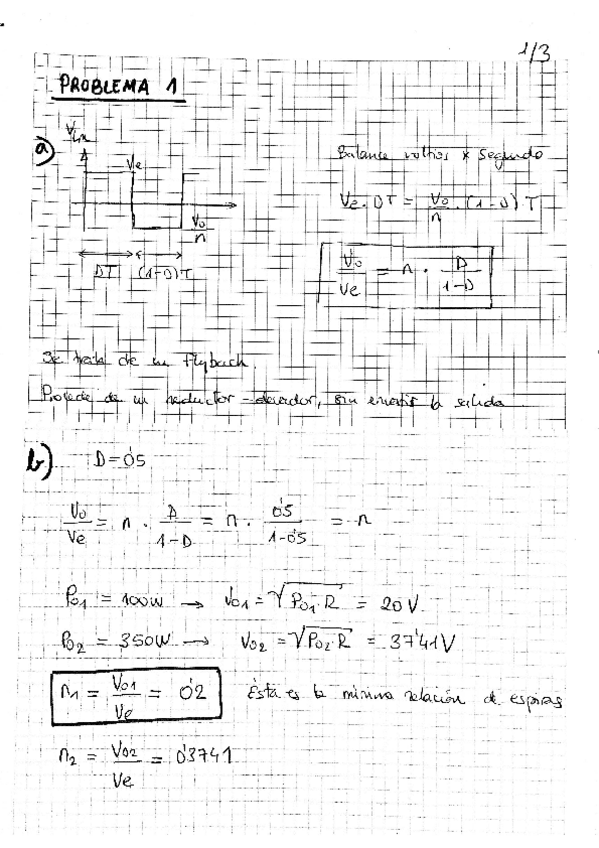 1/3
PROBLEMA 1
a)
Ve
Vo/n
DT (1-D)T
Balance voltios x segundo
Ve · DT = Vo/n · (1-D) T
Vo/Ve = n · D/(1-D)
Se trata de un flyback.
Procede de un reductor-elevador, sin invertir la salida
b) D=0'5
Vo/Ve = n · D/(1-D) = n · 0'5/(1-0'5) = n
Po1 = 100W → Vo1 = √(Po1·R) = 20V
Po2 = 350W → Vo2 = √(Po2·R) = 37'41V
n1 = Vo1/Ve = 0'2 Ésta es la mínima relación de espiras
n2 = Vo2/Ve = 0'3741